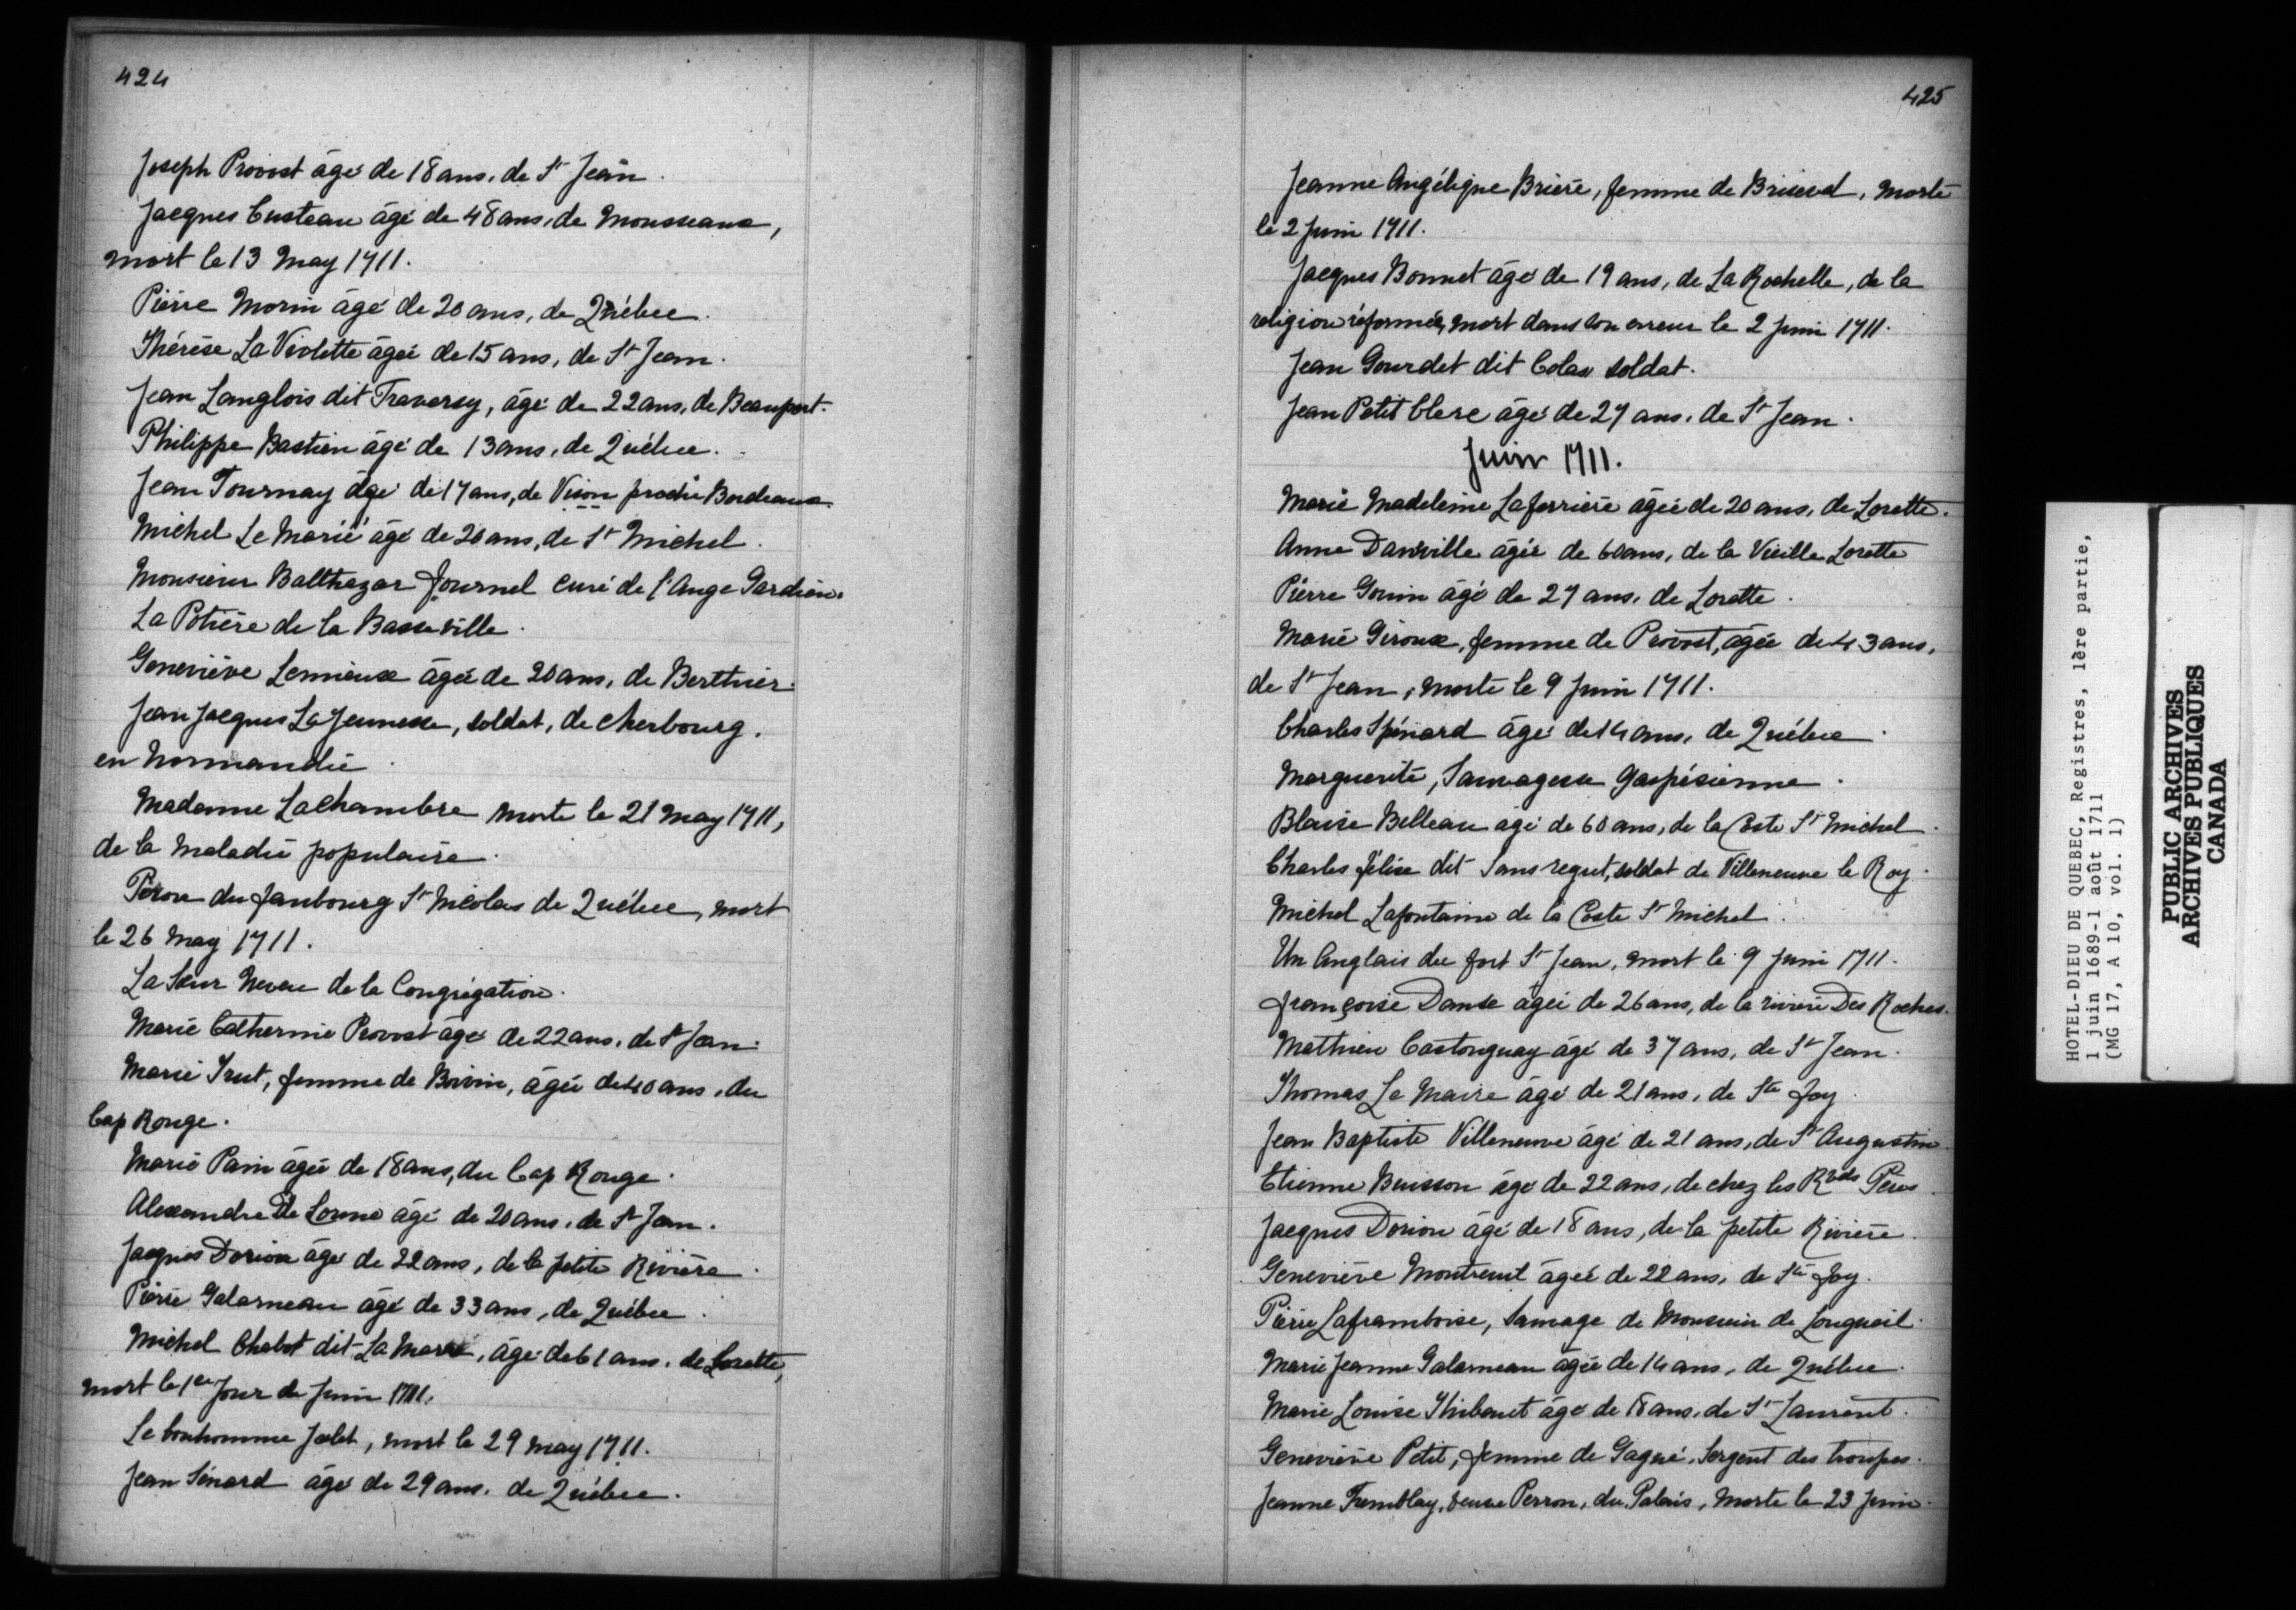 424
Joseph Provost âgé de 18 ans, de St Jean.
Jacques Custeau âgé de 48 ans, de Mousseaux,
mort le 13 May 1711.
Pierre Morin âgé de 20 ans, de Québec.
Thérèse La Violette âgée de 15 ans, de St Jean.
Jean Langlois dit Traversy, âgé de 22 ans, de Beauport.
Philippe Bastien âgé de 13 ans, de Québec.
Jean Tournay âgé de 17 ans, de Vison proche Bordeaux.
Michel Le Marié âgé de 20 ans, de St Michel.
Monsieur Balthazar Fournel curé de l'Ange Gardien.
La Potière de la Basse ville.
Geneviève Lemieux âgée de 20 ans, de Berthier.
Jean Jacques La Jeunesse, soldat, de Cherbourg,
en Normandie.
Madame LaChambre morte le 21 May 1711,
de la maladie populaire.
du faubourg St Nicolas de Québec, mort
le 26 May 1711.
La Sœur Neveu de la Congrégation.
Marie Catherine Provost âgé de 22 ans, de St Jean.
Marie Trut, femme de Boivin, âgée de 40 ans, du
Cap Rouge.
Marie Pain âgée de 18 ans, du Cap Rouge.
Alexandre De Lorme âgé de 20 ans, de St Jean.
Jacques Dorion âgé de 22 ans, de la petite Rivière.
Pierre Galarneau âgé de 33 ans, de Québec.
Michel Chabot dit La Marre, âgé de 61 ans, de Lorette,
mort le 1er Jour de Juin 1711.
Le bonhomme Jolet, mort le 29 May 1711.
Jean Sénard âgé de 29 ans, de Québec.
425
Jeanne Angélique Brière, femme de Briseval, morte
le 2 Juin 1711.
Jacques Bonnet âgé de 19 ans, de La Rochelle, de la
religion réformée, mort dans son erreur le 2 Juin 1711.
Jean Gourdet dit Colas soldat.
Jean Petit Clerc âgé de 27 ans, de St Jean.
Juin 1711.
Marie Madeleine Laferrière âgée de 20 ans, de Lorette.
Anne Danville âgée de 60 ans, de la Vieille Lorette
Pierre Gouin âgé de 27 ans, de Lorette.
Marie Giroux, femme de Provost, âgée de 43 ans,
de St Jean, morte le 9 Juin 1711.
Charles Spénard âgé de 14 ans, de Québec.
Marguerite, Sauvagesse Gaspésienne.
Blaise Belleau agé de 60 ans, de la Coste St Michel.
Charles félix dit Sans regret, soldat de Villeneuve le Roy.
Michel Lafontaine de la Coste St Michel.
Un Anglais du fort St Jean, mort le 9 Juin 1711.
françoise Danse âgée de 26 ans, de la rivière Des Roches.
Mathieu Castonguay âgé de 37 ans, de St Jean.
Thomas Le Maire âgé de 21 ans, de Ste foy.
Jean Baptiste Villeneuve âgé de 21 ans, de St Augustin.
Etienne Buisson âgé de 22 ans, de chez les Rvds Pères.
Jacques Dorion âgé de 18 ans, de la petite Rivière.
Geneviève Montreuil âgée de 22 ans, de Ste foy.
Pierre Laframboise, Sauvage de Monsieur de Longueil.
Marie Jeanne Galarneau âgée de 14 ans, de Québec.
Marie Louise Thibouet âgé de 18 ans, de St Laurent.
Geneviève Petit, femme de Gagné, Sergent des troupes.
Jeanne Tremblay, veuve Perron, du Palais, Morte le 23 Juin.
HOTEL-DIEU DE QUEBEC, Registres, 1ère partie,
1 juin 1689-1 août 1711
(MG 17, A 10, vol. 1)
PUBLIC ARCHIVES
ARCHIVES PUBLIQUES
CANADA